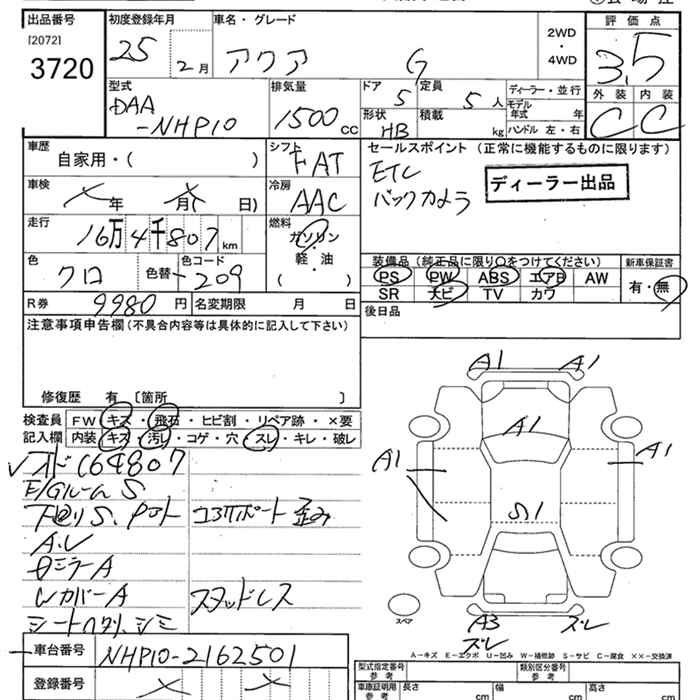 出品番号 初度登録年月 車名・グレード 評価点
[2072]
3720
25 2月 アクア G 2WD・4WD 3.5
型式 排気量 ドア 定員 ディーラー・並行 外装 内装
DAA-NHP10 1500cc 5 5人 モデル年式 年 C C
形状 HB 積載 kg ハンドル 左・右
車歴 シフト セールスポイント（正常に機能するものに限ります）
自家用・( ) FAT ETC
車検 冷房 バックカメラ ディーラー出品
年 月( 日) AAC
走行 燃料
16万4千807km ガソリン
軽・油
( )
色 色替 色コード 装備品（純正品に限り○をつけてください） 新車保証書
クロ 209 PS PW ABS エアB AW 有・無
R券 9980円 名変期限 月 日 SR ナビ TV カワ
注意事項申告欄（不具合内容等は具体的に記入して下さい） 後日品
修復歴 有 〔箇所 〕
検査員 FW キズ・飛石・ヒビ割・リペア跡・×要
記入欄 内装 キズ・汚レ・コゲ・穴・スレ・キレ・破レ
A1 A1
A1
A1 A1
S1
A3 スレ
スレ
スペア
オド164807
E/Gルーム S
コアサポート歪み
A.U
ミラーA
カバーA スタッドレス
シート シミ
A－キズ E－エクボ U－凹み W－補修跡 S－サビ C－腐食 ××－交換済
車台番号 NHP10-2162501
登録番号
型式指定番号 参考 類別区分番号 参考
車庫証明用 参考 長さ cm 幅 cm 高さ cm